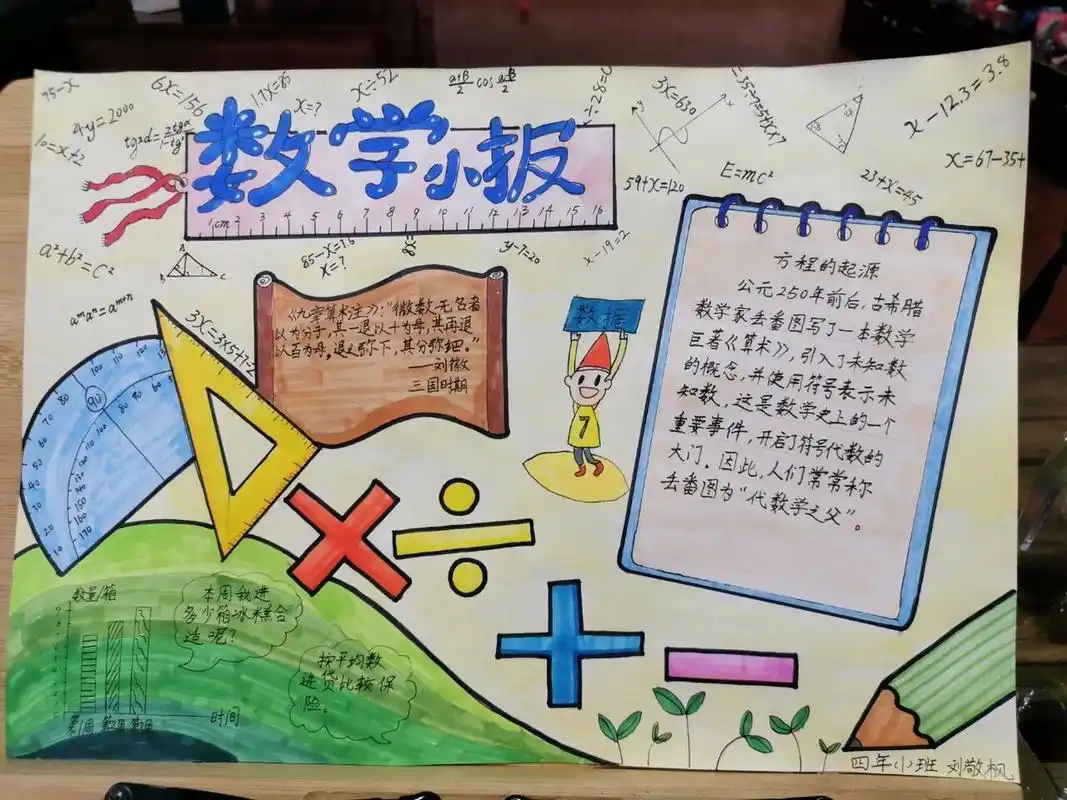 75-x
6x=156
1.7x=85
x=?
x÷52
3x=630
x-12.3=3.8
4y=2000
x=67-35+
E=mc²
59+x=120
23+x=45
数学小报
1cm 2 3 4 5 6 7 8 9 10 11 12 13 14 15 16
a²+b²=c²
A
B
C
85-x=7.6
x=?
y-7=20
x-19=2
aᵐaⁿ=aᵐ⁺ⁿ
《九章算术注》:“微数无名者
以为分子,其一退以十为母,其再退
以百为母。退之弥下,其分弥细。”
——刘徽
三国时期
数据
7
方程的起源
公元250年前后,古希腊
数学家丢番图写了一本数学
巨著《算术》,引入了未知数
的概念,并使用符号表示未
知数,这是数学史上的一个
重要事件,开启了符号代数的
大门。因此,人们常常称
丢番图为“代数学之父”。
数量/箱
第1周 第2周 第3周
时间
本周我进
多少箱冰糕合
适呢?
按平均数
进货比较保
险。
四年(1)班 刘敬枫